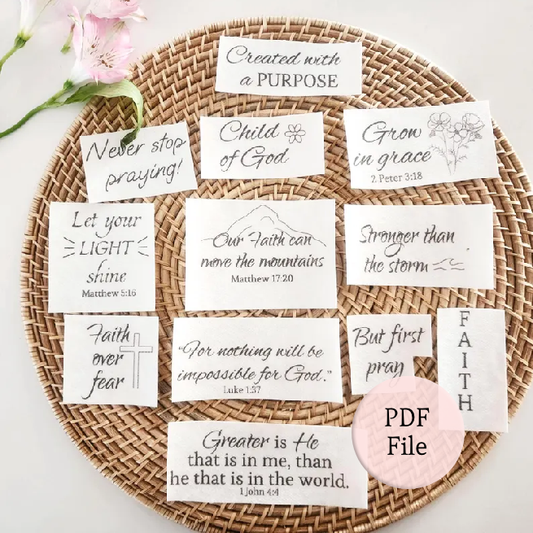 Created with
a PURPOSE
Never stop
praying!
Child
of God
Grow
in grace
2 Peter 3:18
Let your
LIGHT
shine
Matthew 5:16
Our Faith can
move the mountains
Matthew 17:20
Stronger than
the storm
Faith
over
fear
"For nothing will be
impossible for God."
Luke 1:37
But first
pray
FAITH
Greater is He
that is in me, than
he that is in the world.
1 John 4:4
PDF
File